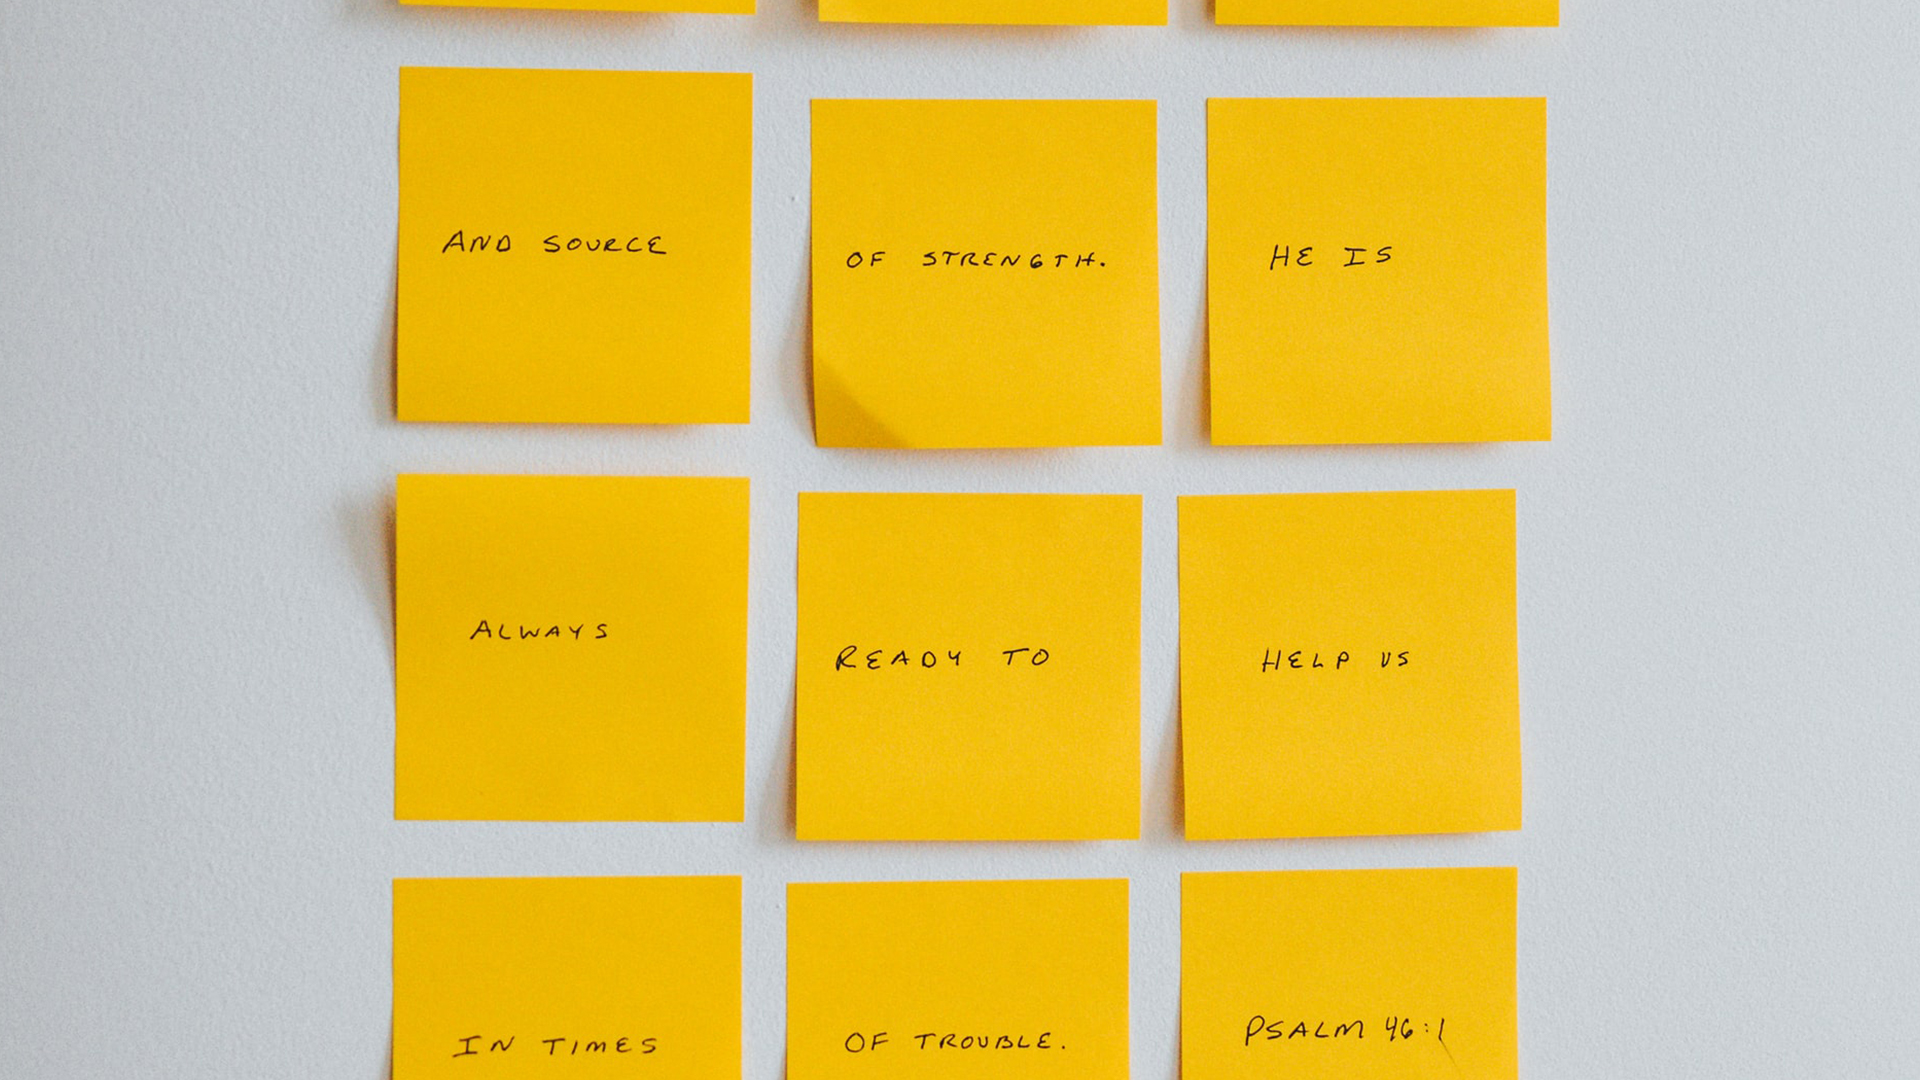 AND SOURCE
OF STRENGTH.
HE IS
ALWAYS
READY TO
HELP US
IN TIMES
OF TROUBLE.
PSALM 46:1